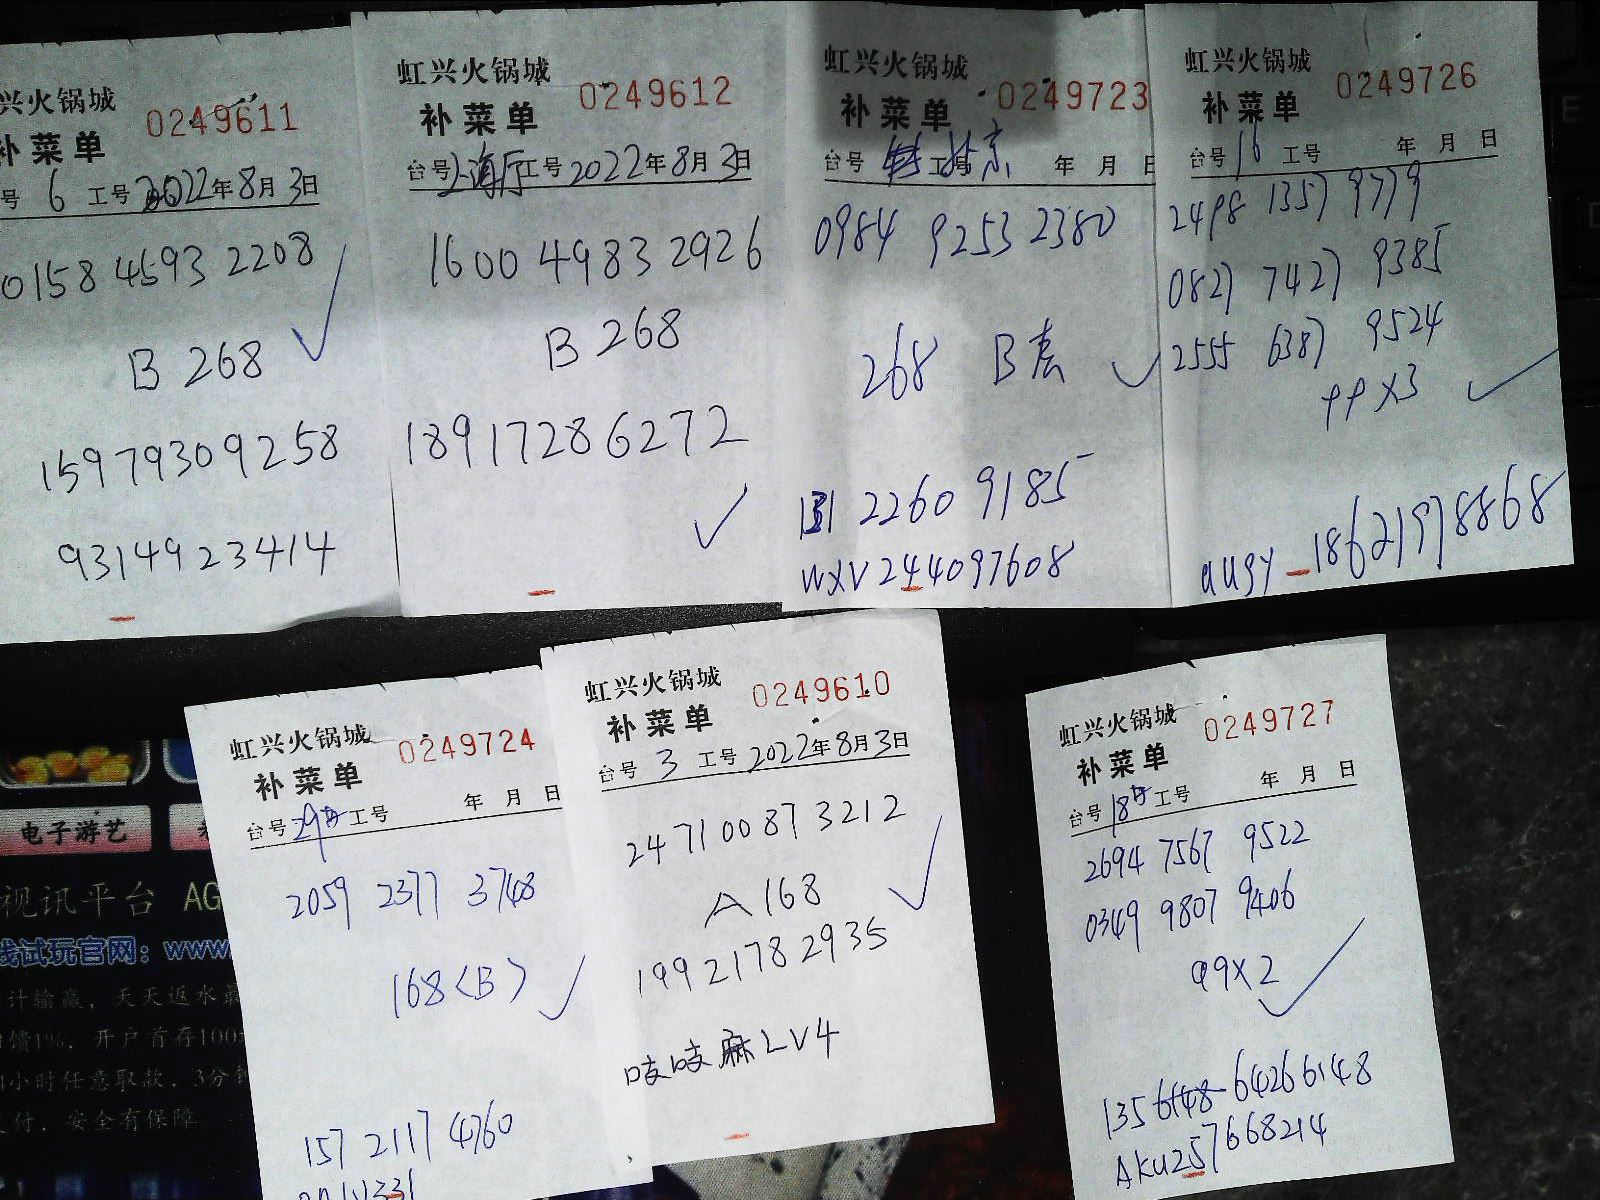 兴火锅城 0249611
补菜单
号 6 工号 2022年8月3日
0158 4593 2208
B 268
15979309258
9314923414
虹兴火锅城 0249612
补菜单
台号 上海厅 工号 2022年8月3日
1600 4983 2926
B 268
18917286272
虹兴火锅城 0249723
补菜单
台号 工号 北京 年 月 日
0984 9253 2380
268 B套
131 2260 9185
WXV244097608
虹兴火锅城 0249726
补菜单
台号 16 工号 年 月 日
2498 1357 9779
0827 7427 9385
2555 6387 9524
99X3
augy 18621978868
虹兴火锅城 0249724
补菜单
台号 29 工号 年 月 日
2059 2377 3748
168<B>
157 2117 4760
虹兴火锅城 0249610
补菜单
台号 3 工号 2022年8月3日
2471 0087 3212
A 168
19921782935
吱吱麻LV4
虹兴火锅城 0249727
补菜单
台号 18 工号 年 月 日
2694 7567 9522
0349 9807 9406
99X2
135 64266148
AKU257668214
电子游艺
视讯平台 AG
线试玩官网：www
计输赢，天天返水最
馈1%，开户首存100
小时任意取款，3分钟
付，安全有保障